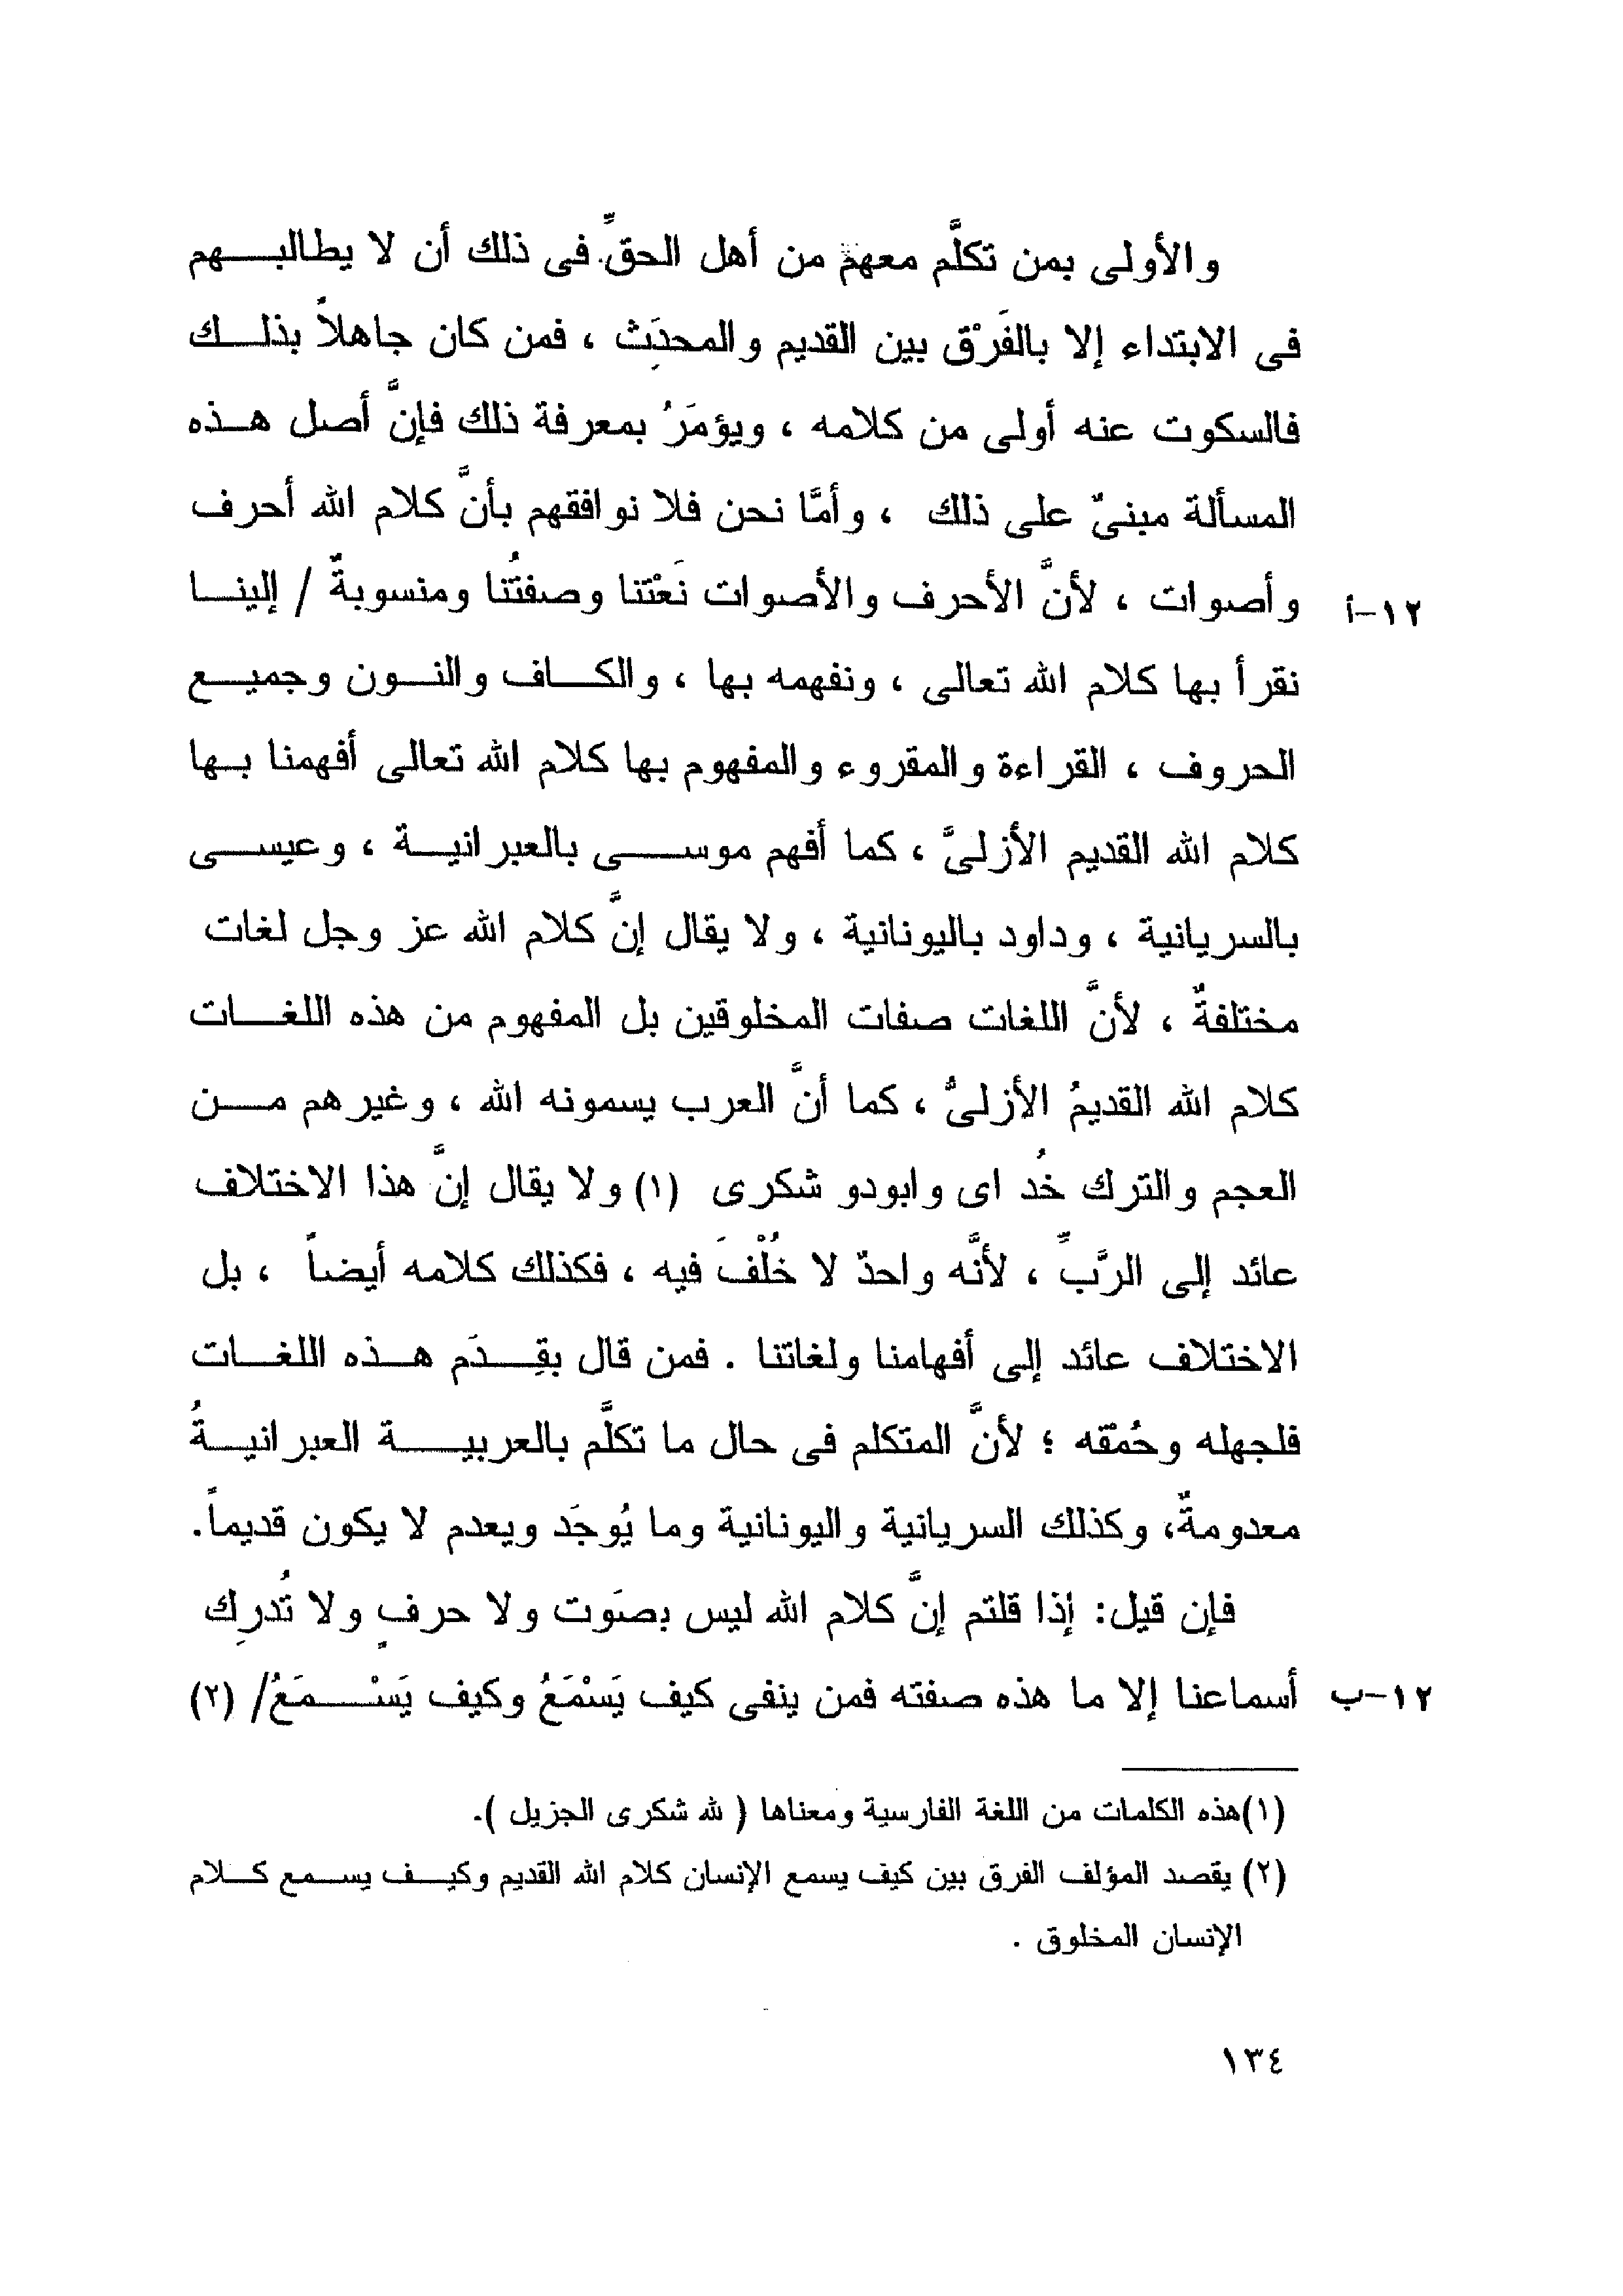 والأولى بمن تكلَّم معهم من أهل الحقِّ فى ذلك أن لا يطالبهم
فى الابتداء إلا بالفَرْق بين القديم والمحدَِث ، فمن كان جاهلاً بذلك
فالسكوت عنه أولى من كلامه ، ويؤمَرُ بمعرفة ذلك فإنَّ أصل هذه
المسألة مبنىٌ على ذلك ، وأمَّا نحن فلا نوافقهم بأنَّ كلام الله أحرف
١٢-أ وأصوات ، لأنَّ الأحرف والأصوات نَعْتنا وصفتُنا ومنسوبةٌ / إلينا
نقرأ بها كلام الله تعالى ، ونفهمه بها ، والكاف والنون وجميع
الحروف ، القراءة والمقروء والمفهوم بها كلام الله تعالى أفهمنا بها
كلام الله القديم الأزلىَّ ، كما أفهم موسى بالعبرانية ، وعيسى
بالسريانية ، وداود باليونانية ، ولا يقال إنَّ كلام الله عز وجل لغات
مختلفةٌ ، لأنَّ اللغات صفات المخلوقين بل المفهوم من هذه اللغات
كلام الله القديمُ الأزلىُّ ، كما أنَّ العرب يسمونه الله ، وغيرهم من
العجم والترك خُد اى وابودو شكرى (١) ولا يقال إنَّ هذا الاختلاف
عائد إلى الرَّبِّ ، لأنَّه واحدٌ لا خُلْفَ فيه ، فكذلك كلامه أيضاً ، بل
الاختلاف عائد إلى أفهامنا ولغاتنا . فمن قال بقِدَم هذه اللغات
فلجهله وحُمْقه ؛ لأنَّ المتكلم فى حال ما تكلَّم بالعربية العبرانيةُ
معدومةٌ، وكذلك السريانية واليونانية وما يُوجَد ويعدم لا يكون قديماً.
فإن قيل: إذا قلتم إنَّ كلام الله ليس بصَوت ولا حرفٍ ولا تُدرِك
١٢-ب أسماعنا إلا ما هذه صفته فمن ينفى كيف يَسْمَعُ وكيف يَسْمَعُ/ (٢)
(١)هذه الكلمات من اللغة الفارسية ومعناها ( لله شكرى الجزيل ).
(٢) يقصد المؤلف الفرق بين كيف يسمع الإنسان كلام الله القديم وكيف يسمع كلام
الإنسان المخلوق .
١٣٤